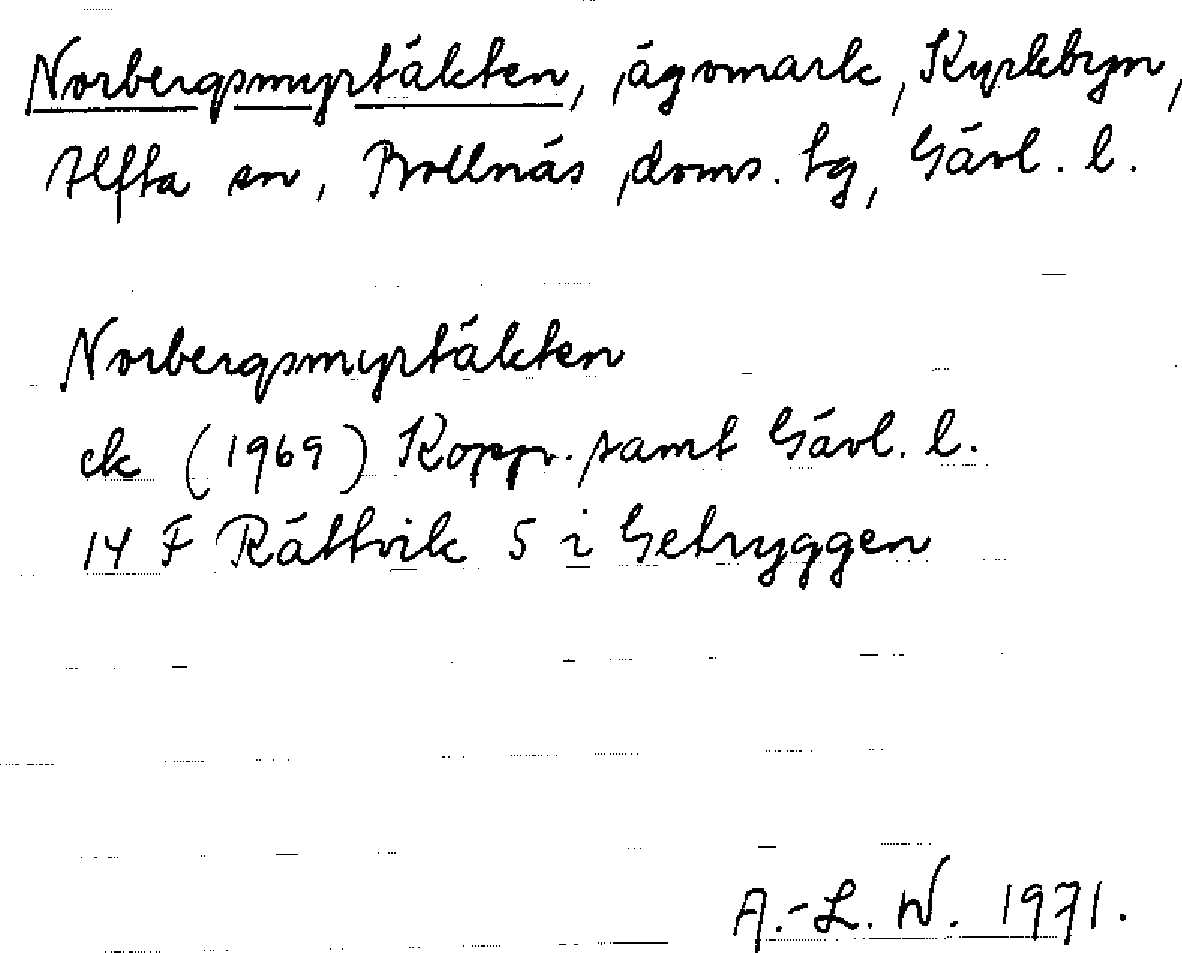 Norbergsmyrtäkten, ägomark, Kyrkbyn,
Alfta sn, Bollnäs doms. tg, Gävl. l.
Norbergsmyrtäkten
ek (1969) Kopp. samt Gävl. l.
14 F Rättvik 5 i Getryggen
A.-L. W. 1971.